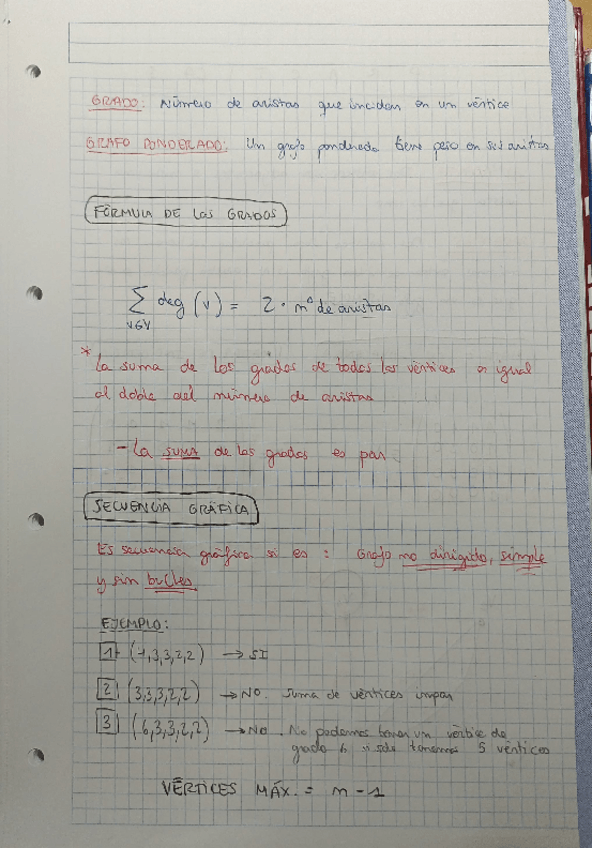 GRADO: Número de aristas que inciden en un vértice
GRAFO PONDERADO: Un grafo ponderado tiene peso en sus aristas
FÓRMULA DE LOS GRADOS
∑ deg (v) = 2 · nº de aristas
V∈V
* La suma de los grados de todos los vértices es igual
al doble del número de aristas
- La SUMA de los grados es par
SECUENCIA GRÁFICA
Es secuencia gráfica si es : Grafo no dirigido, simple
y sin bucles.
EJEMPLO:
1 (4,3,3,2,2) → SI
2 (3,3,3,2,2) → No. Suma de vértices impar
3 (6,3,3,2,2) → No. No podemos tener un vértice de
grado 6 si solo tenemos 5 vértices
VÉRTICES MÁX. = n - 1